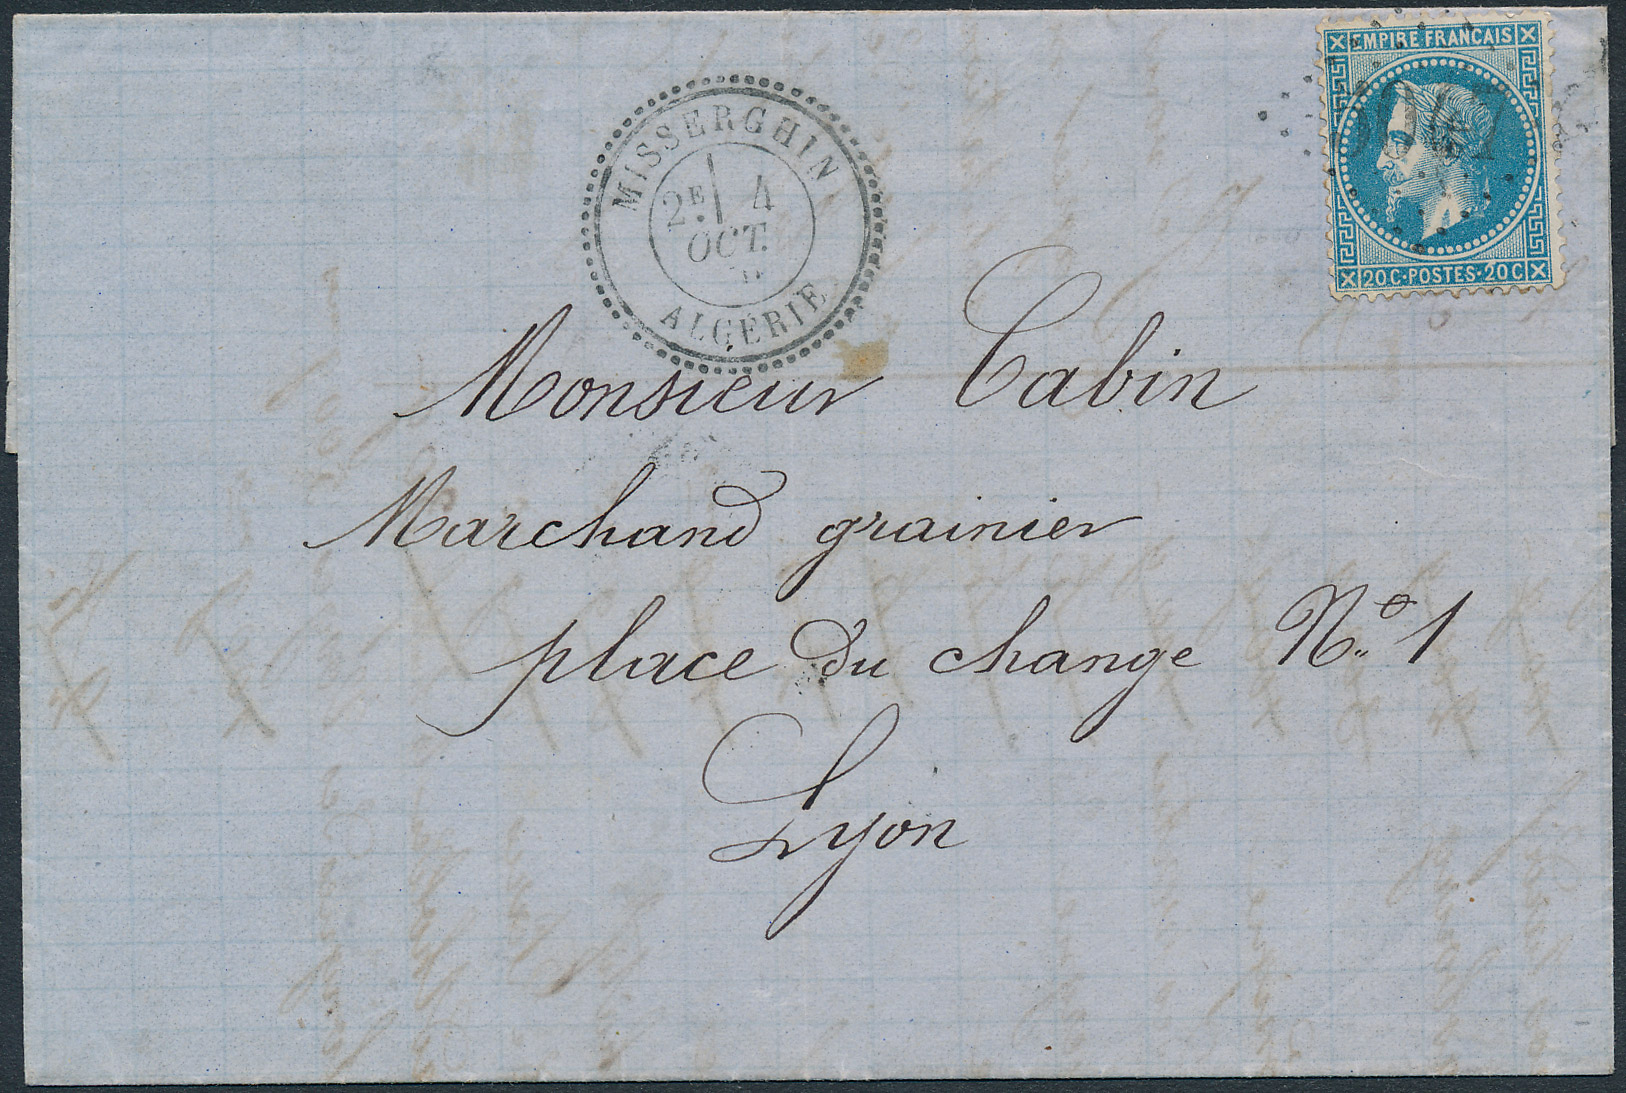 EMPIRE FRANCAIS
20 C · POSTES · 20 C
MISSERGHIN
2E 4
OCT.
ALGÉRIE
Monsieur Cabin
Marchand grainier
place du change No 1
Lyon